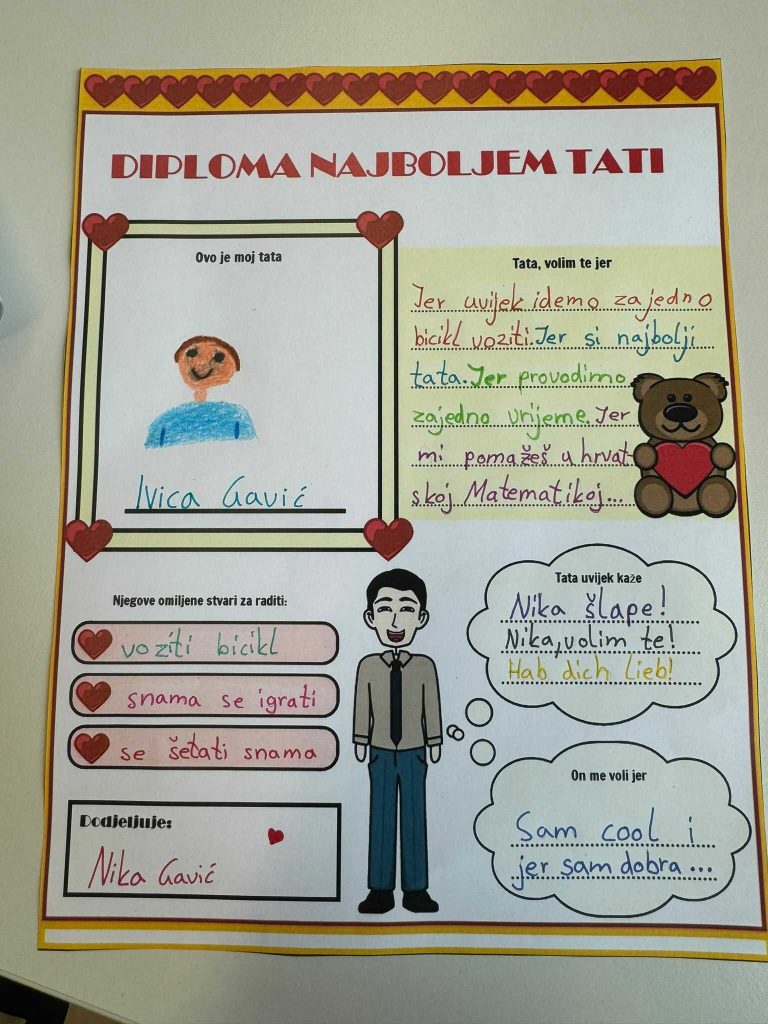 DIPLOMA NAJBOLJEM TATI
Ovo je moj tata
Ivica Gavić
Tata, volim te jer
Jer uvijek idemo zajedno
bicikl voziti. Jer si najbolji
tata. Jer provodimo
zajedno vrijeme. Jer
mi pomažeš u hrvat-
skoj Matematikoj...
Njegove omiljene stvari za raditi:
voziti bicikl
snama se igrati
se šetati snama
Tata uvijek kaže
Nika šlape!
Nika, volim te!
Hab dich lieb!
On me voli jer
Sam cool i
jer sam dobra...
Dodjeljuje:
Nika Gavić